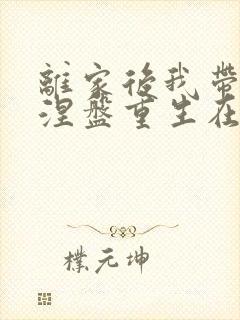 離家後我帶
涅盤重生在
樸元坤